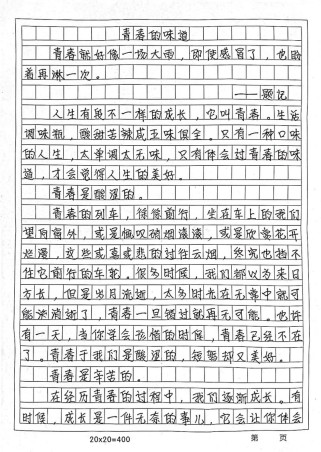 青春的味道
青春就好像一场大雨，即使感冒了，也盼
着再淋一次。
——题记
人生有段不一样的成长，它叫青春。生活
调味瓶，酸甜苦辣咸五味俱全。只有一种口味
的人生，太单调太无味，只有体会过青春的味
道，才会觉得人生的美好。
青春是酸涩的。
青春的列车，徐徐前行，坐在车上的我们
望向窗外，或是慨叹硝烟滚滚，或是欣赏花开
烂漫，这些或喜或悲的过往云烟，终究也挡不
住它前行的车轮。很多时候，我们都以为来日
方长，但是岁月流逝，太多时光在无声中就可
能消逝了，青春一旦错过就再无可能。也许
有一天，当你学会珍惜的时候，青春已经不在
了。青春于我们是酸涩的，短暂却又美好。
青春是辛苦的。
在经历青春的过程中，我们逐渐成长。有
时候，成长是一件无奈的事儿，它会让你体会
20x20=400 第 页